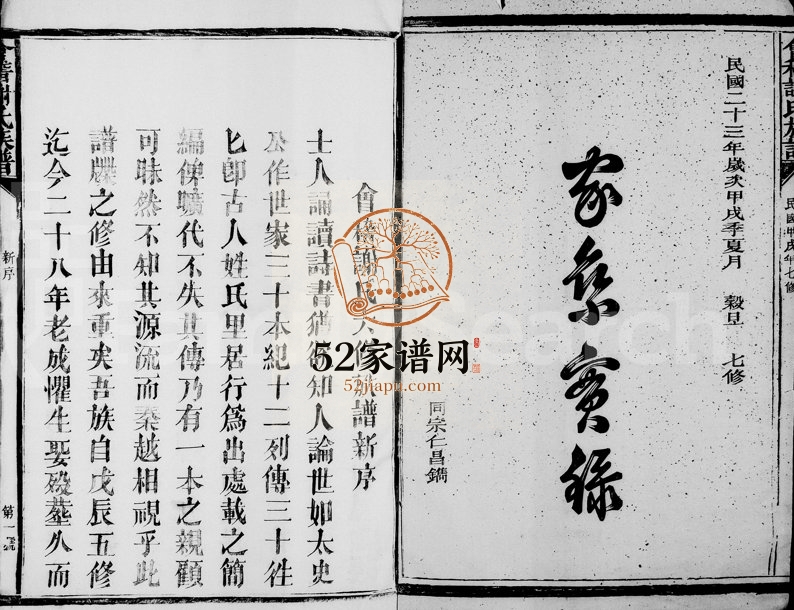 民國二十三年歲次甲戌季夏月 穀旦 七修
家乘實錄
同宗仁昌鐫
會稽謝氏六修族譜新序
士人誦讀詩書猶須知人論世如太史
公作世家三十本紀十二列傳三十徃
匕卽古人姓氏里居行爲出處載之簡
編俾曠代不失其傳乃有一本之親顧
可昧然不知其源流而秦越相視乎此
譜牒之修由來重矣吾族自戊辰五修
迄今二十八年老成懼生娶殁塟久而
會稽謝氏族譜
新序
第一號
民國甲戌年七修
52家谱网
52jiapu.com